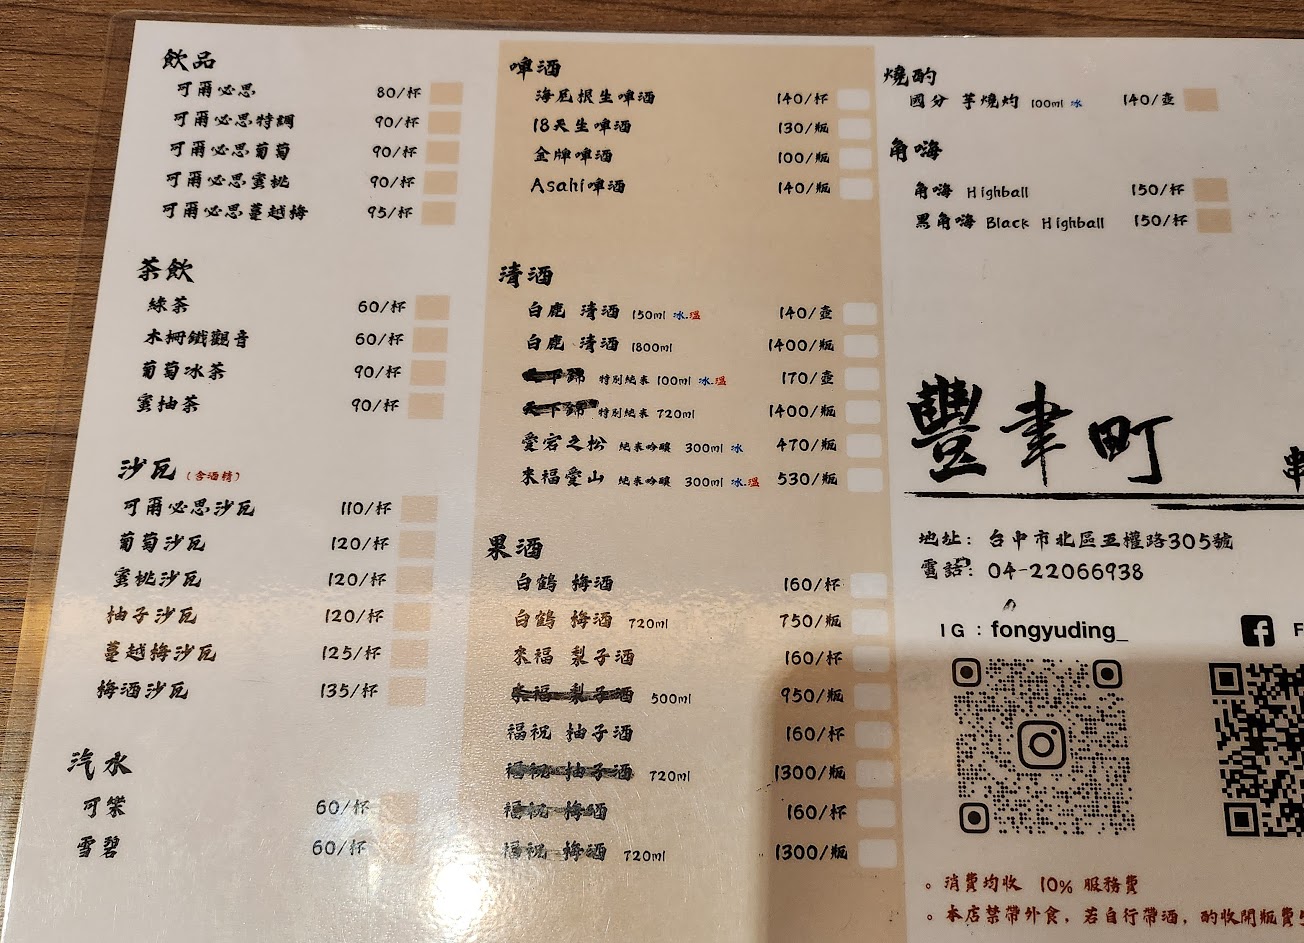 飲品
可爾必思 80/杯
可爾必思特調 90/杯
可爾必思葡萄 90/杯
可爾必思蜜桃 90/杯
可爾必思蔓越梅 95/杯
茶飲
綠茶 60/杯
木柵鐵觀音 60/杯
葡萄冰茶 90/杯
蜜柚茶 90/杯
沙瓦(含酒精)
可爾必思沙瓦 110/杯
葡萄沙瓦 120/杯
蜜桃沙瓦 120/杯
柚子沙瓦 120/杯
蔓越梅沙瓦 125/杯
梅酒沙瓦 135/杯
汽水
可樂 60/杯
雪碧 60/杯
啤酒
海尼根生啤酒 140/杯
18天生啤酒 130/瓶
金牌啤酒 100/瓶
Asahi啤酒 140/瓶
清酒
白鹿 清酒 150ml 冰.溫 140/壺
白鹿 清酒 1800ml 1400/瓶
天下錦 特別純米 100ml 冰.溫 170/壺
天下錦 特別純米 720ml 1400/瓶
愛宕之松 純米吟釀 300ml 冰 470/瓶
來福愛山 純米吟釀 300ml 冰.溫 530/瓶
果酒
白鶴 梅酒 160/杯
白鶴 梅酒 720ml 750/瓶
來福 梨子酒 160/杯
來福 梨子酒 500ml 950/瓶
福祝 柚子酒 160/杯
福祝 柚子酒 720ml 1300/瓶
福祝 梅酒 160/杯
福祝 梅酒 720ml 1300/瓶
燒酌
國分 芋燒灼 100ml 冰 140/壺
角嗨
角嗨 Highball 150/杯
黑角嗨 Black Highball 150/杯
豐聿町 串
地址: 台中市北區五權路305號
電話: 04-22066938
IG : fongyuding_
F
。消費均收 10% 服務費
。本店禁帶外食,若自行帶酒,酌收開瓶費